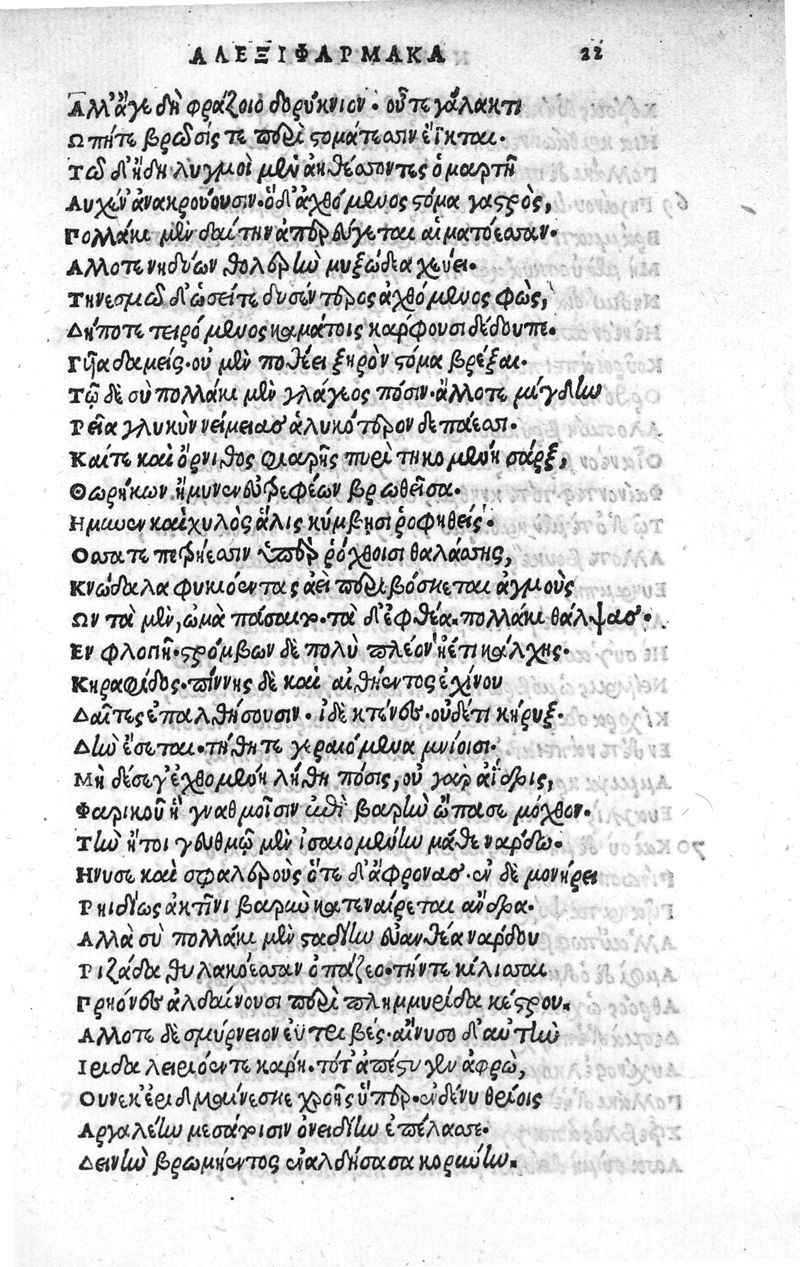 ΑΛΕΞΙΦΑΡΜΑΚΑ 22
Ἀλλ' ἄγε δὴ φράζοιο δορύκνιον· οὗ τε γάλακτι
Ὠπή τε βρῶσίς τε περὶ στομάτεσσιν ἔϊκται.
Τῷ δ' ἤδη λυγμοὶ μὲν ἀηθέσσοντες ὁμαρτῆ
Αὐχέν' ἀνακρούουσιν· ὁ δ' ἀχθόμενος στόμα γαστρὸς,
Πολλάκι μὲν δαίτην ἀπερεύγεται αἱματόεσσαν.
Ἄλλοτε νηδύων θολερὴν μυξώδεα χεύει.
Τηνεσμῷ δ' ὡσείτε δυσέντερος ἀχθόμενος φὼς,
Δήποτε τειρόμενος καμάτοις κάρφουσι δέδουπε.
Γυῖα δαμείς· οὐ μὲν ποθέει ξηρὸν στόμα βρέξαι.
Τῷ δὲ σὺ πολλάκι μὲν γλάγεος πόσιν· ἄλλοτε μίγδην
Ῥεῖα γλυκὺν νείμειας ἁλυκότερον δεπάεσσι.
Καί τε καὶ ὄρνιθος φιαρῆς πυρὶ τηκομένη σάρξ,
Θωρήκων ἤμυνεν ὑφεφέων βρωθεῖσα.
Ἤμυνεν καὶ χυλὸς ἅλις κύμβῃσι ῥοφηθείς.
Ὅσσα τε πεφήεσιν ὑπὲρ ῥόχθοισι θαλάσσης,
Κνώδαλα φυκιόεντας ἀεὶ περιβόσκεται ἀγμοὺς
Ὧν τὰ μὲν, ὠμὰ πάσαιτο. τὰ δ' ἐφθέα. πολλάκι θάλψας.
Ἐν φλοπῇ. στρόμβων δὲ πολὺ πλέον ἠέτι κάλχης.
Κηραφίδος. πίννης δὲ καὶ αἰθήεντος ἐχίνου
Δαῖτες ἐπαλθήσουσιν. ἰδὲ κτένες. οὐδέτι κῆρυξ.
Δὴν ἔσεται. τήθη τε γεραιόμενα μνίοισι.
Μὴ δέσεγ' ἐχθομένη λήθῃ πόσις, οὐ γὰρ ἄϊδρις,
Φαρικοῦ ἣ γναθμοῖσιν ἐπὶ βαρὺν ὤπασε μόχθον.
Τὴν ἤτοι γευθμῷ μὲν ἰσαιομένην μάθε νάρδῳ.
Ἤνυσε καὶ σφαλεροὺς ὁτὲ δ' ἄφρονας. ἐν δὲ μονήρει
Ῥηϊδίως ἀκτῖνι βαρὺν κατεναίρεται ἄνδρα.
Ἀλλὰ σὺ πολλάκι μὲν σταδίην εὐανθέα νάρδου
Ῥιζάδα θυλακόεσσαν ὀπάζεο. τήντε κίλισσαι
Πρηόνες ἀλδαίνουσι περὶ πλημμυρίδα κέστρου.
Ἄλλοτε δὲ σμύρνειον ἐϋτριβές. αἴνυσο δ' αὐτὴν
Ἴριδα λειριόεντε κάρη. τότ' ἀπέστυγεν ἀφρὼ,
Οὕνεκ' ἐριδμαίνεσκε χροῆς ὕπερ. ἐν δένυ θρίοις
Ἀργαλέην μεσάτοισιν ὀνειδίην ἐπέλασσε.
Δεινὴν βρωμήεντος ἐναλδήσασα κορύνην.